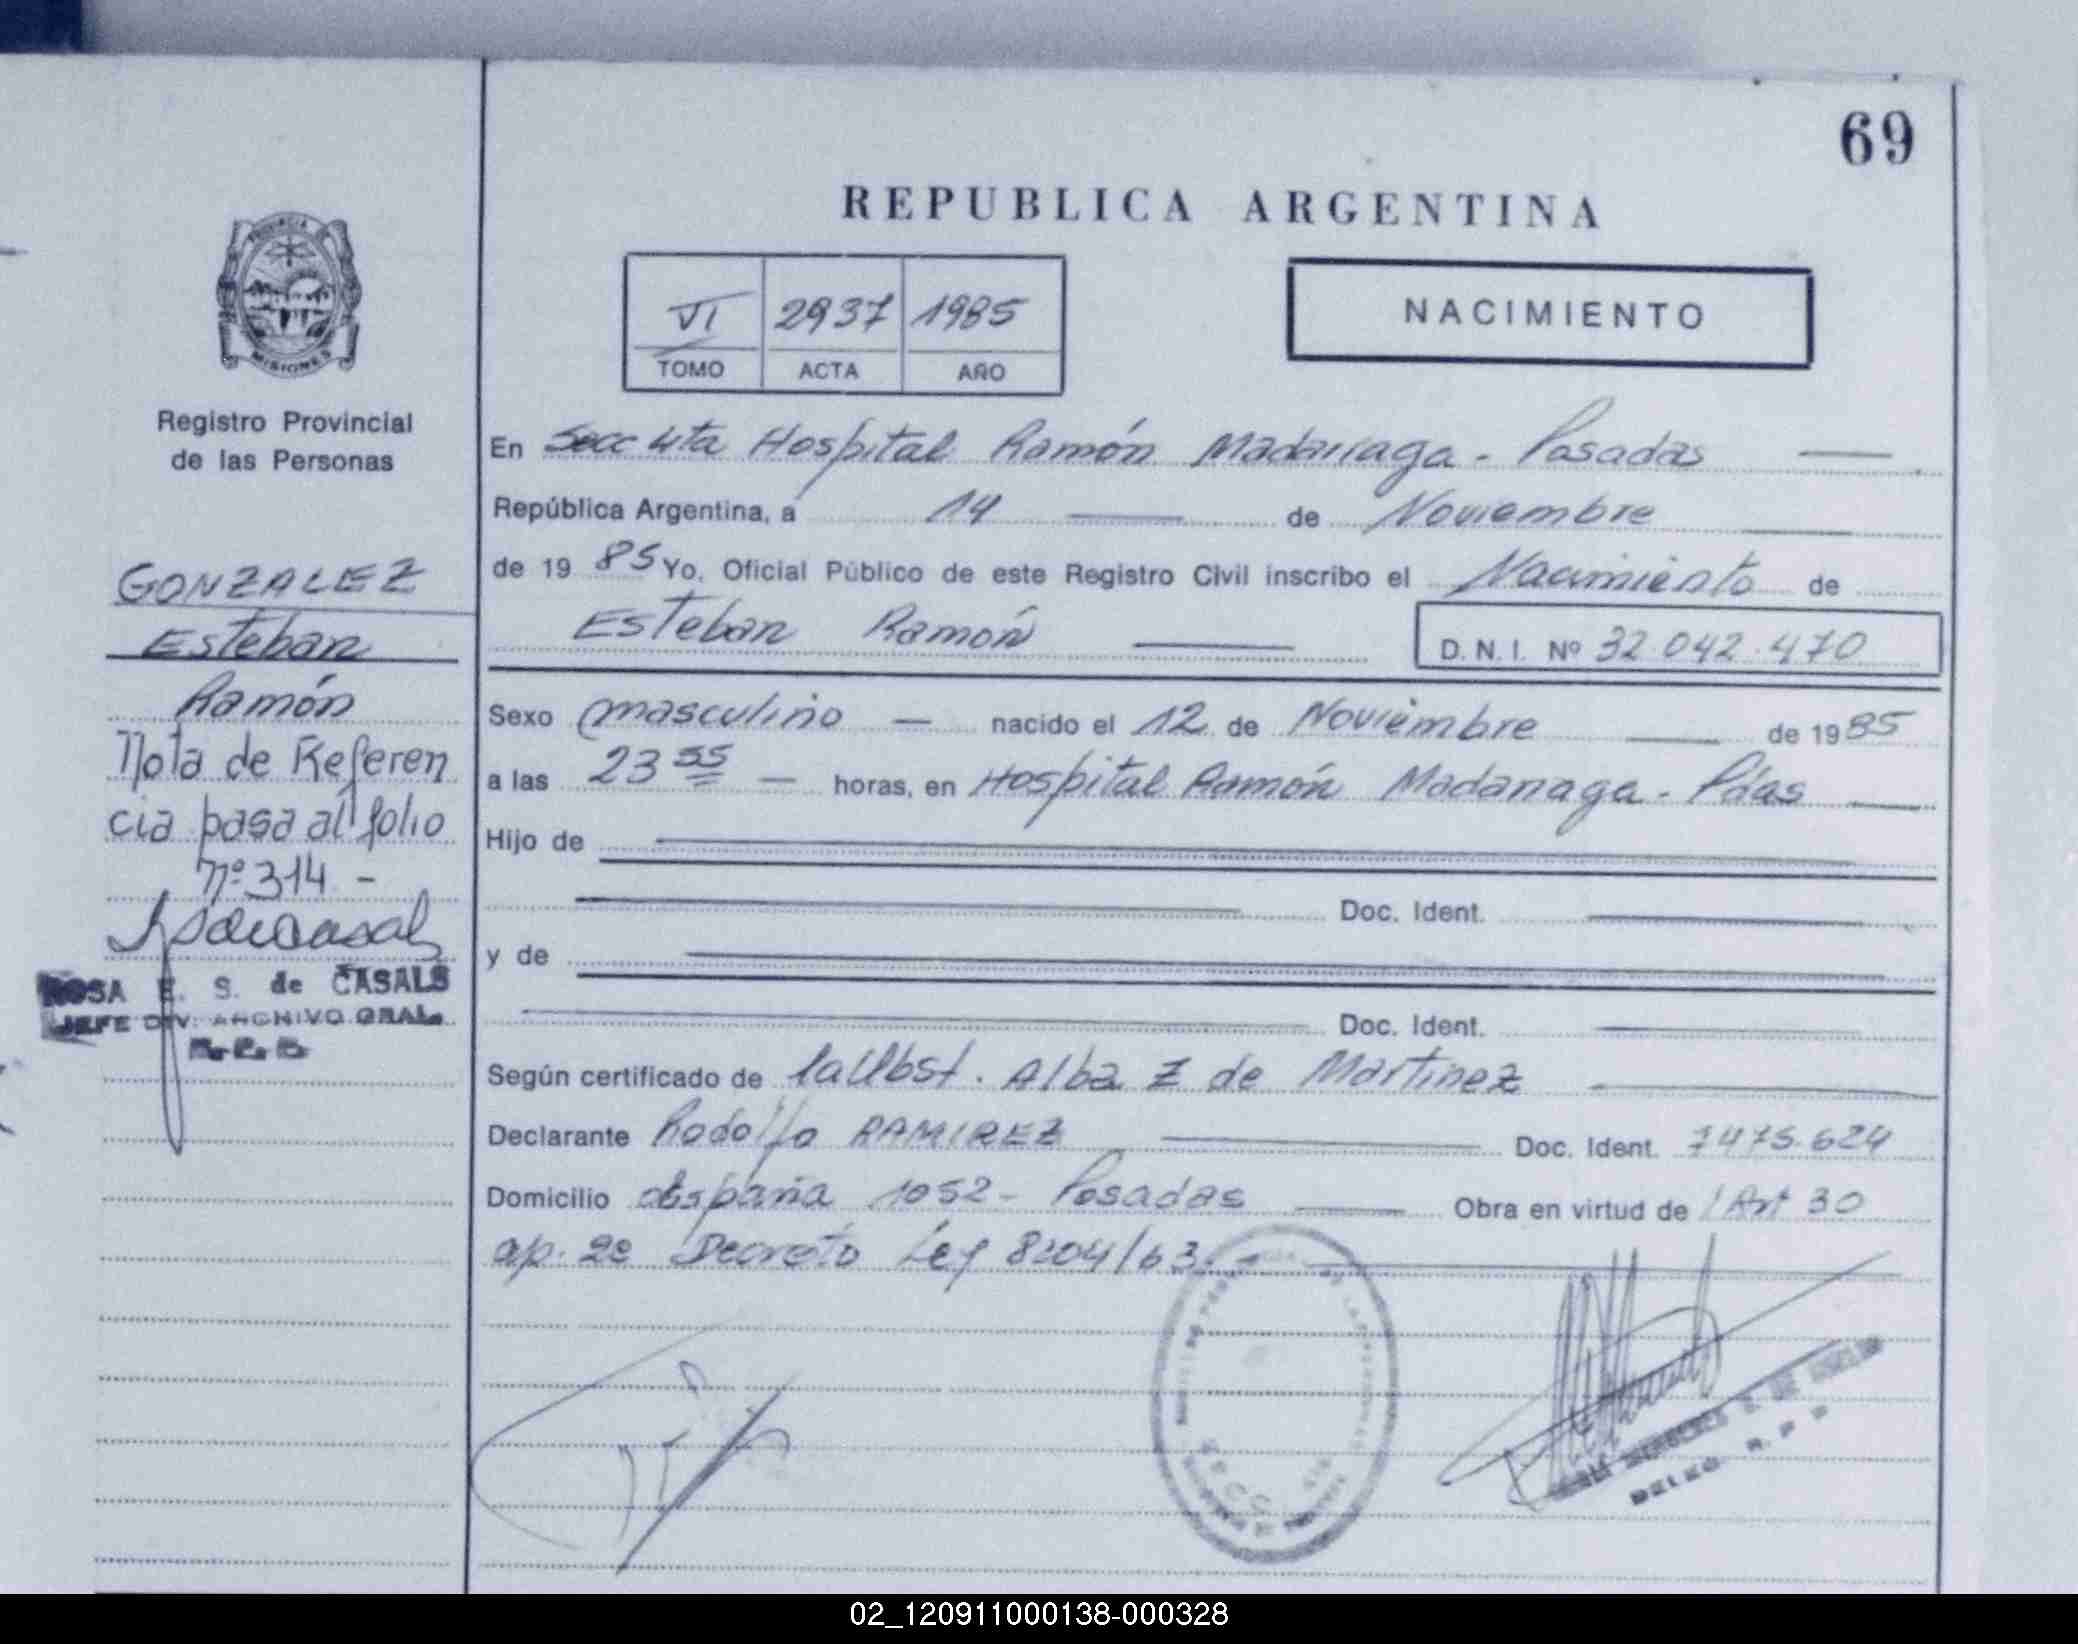 69
REPUBLICA ARGENTINA
VI 2937 1985
TOMO ACTA AÑO
NACIMIENTO
PROVINCIA
MISIONES
Registro Provincial
de las Personas
GONZALEZ
Esteban
Ramón
Nota de Referen
cia pasa al folio
nº 314 -
ROSA E. S. de CASALS
JEFE DIV. ARCHIVO GRAL.
En Secc 4ta Hospital Ramón Madarriaga - Posadas
República Argentina, a 14 de Noviembre
de 19 85 Yo, Oficial Público de este Registro Civil inscribo el Nacimiento de
Esteban Ramón
D. N. I. Nº 32.042.470
Sexo masculino - nacido el 12 de Noviembre de 19 85
a las 23 55 - horas, en Hospital Ramón Madariaga - Pdas
Hijo de
Doc. Ident.
y de
Doc. Ident.
Según certificado de la Obst. Alba Z de Martinez
Declarante Rodolfo RAMIREZ Doc. Ident. 7475.624
Domicilio España 1052 - Posadas Obra en virtud de l Art 30
ap. 2º Decreto Ley 8204/63. -
SECC.
R. P. P.
02_120911000138-000328